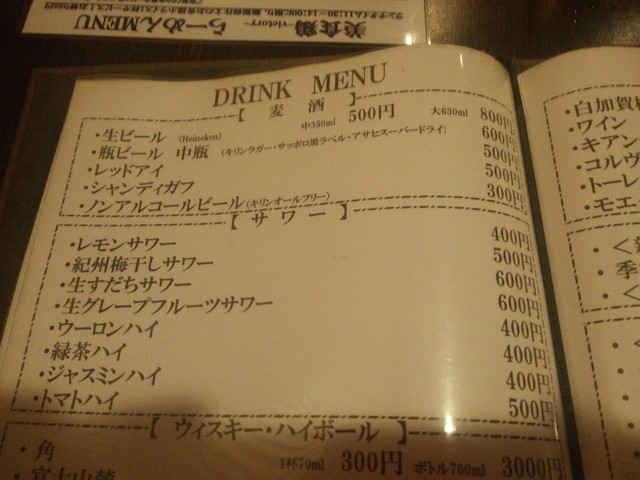 美食鶏 -victory- らーめんMENU
DRINK MENU
【 麦 酒 】
・生ビール (Heineken) 中350ml 500円 大630ml 800円
・瓶ビール 中瓶 (キリンラガー・サッポロ黒ラベル・アサヒスーパードライ) 600円
・レッドアイ 500円
・シャンディガフ 500円
・ノンアルコールビール(キリンオールフリー) 300円
【 サワー 】
・レモンサワー 400円
・紀州梅干しサワー 500円
・生すだちサワー 600円
・生グレープフルーツサワー 600円
・ウーロンハイ 400円
・緑茶ハイ 400円
・ジャスミンハイ 400円
・トマトハイ 500円
【 ウィスキー・ハイボール 】
・角 1杯70ml 300円 ボトル700ml 3000円
・富士山麓
・白加賀
・ワイン
・キアン
・コルヴ
・トーレ
・モエ
・季